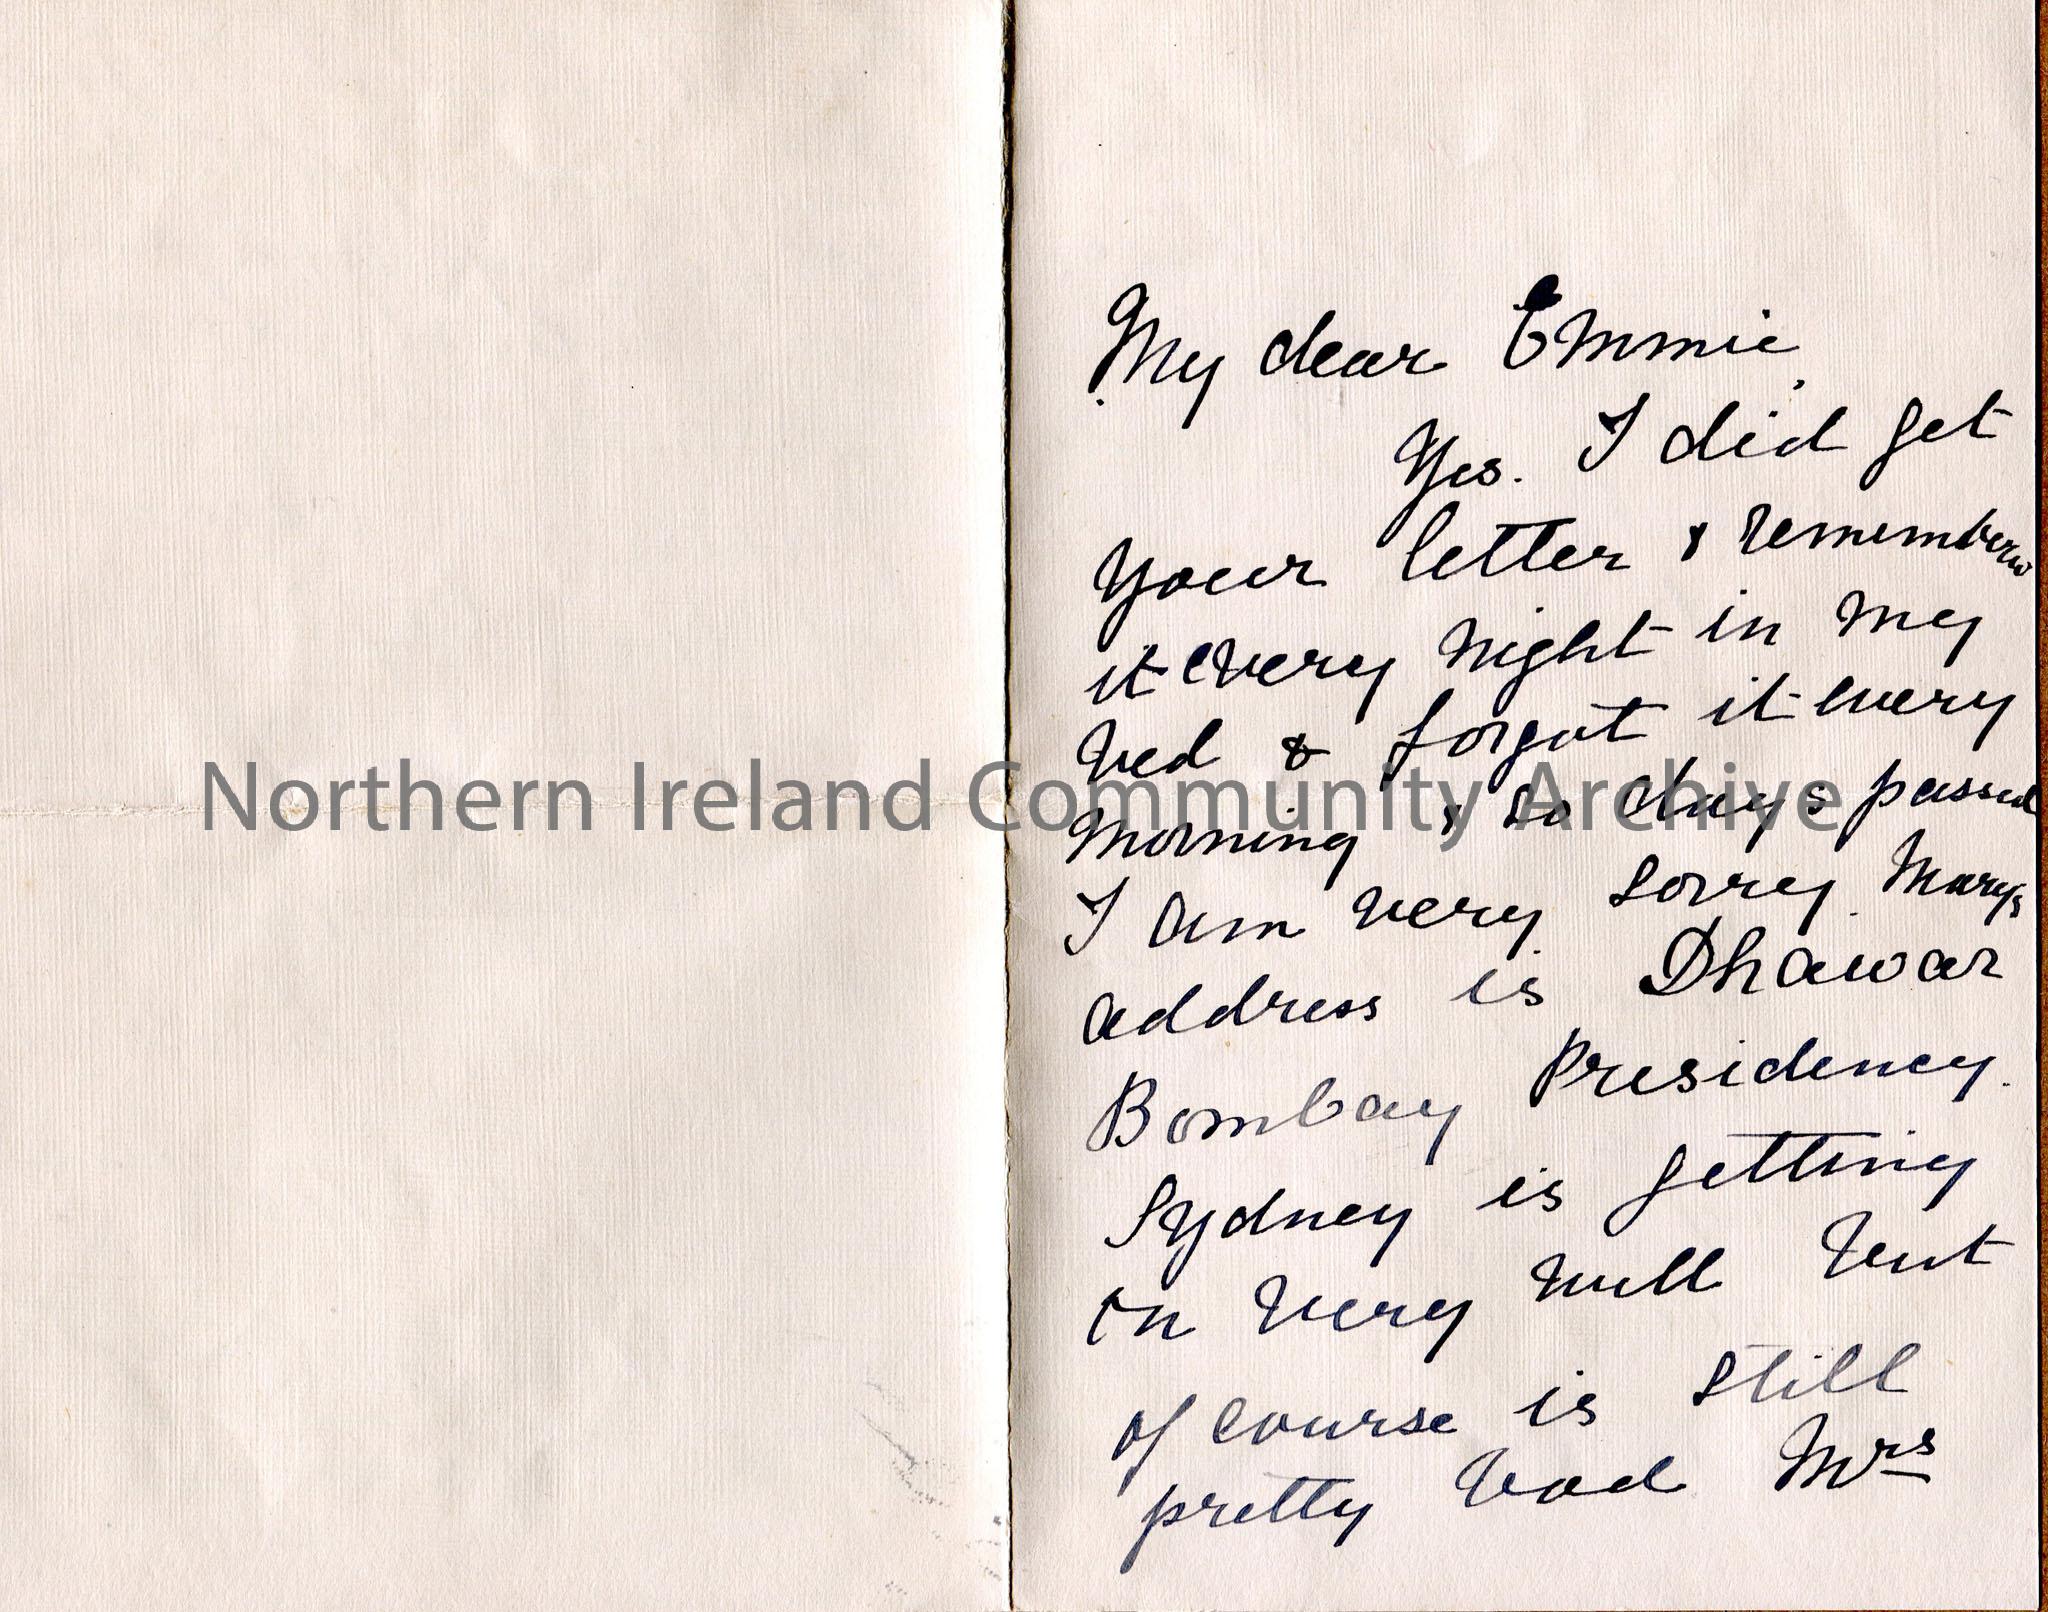 My dear Emmie,
Yes. I did get
your letter & remembered
it every night in my
bed & forgot it every
Northern Ireland Community Archive
morning & so days passed
I am very sorry. Marys
address is Dhawar
Bombay Presidency.
Sydney is getting
on very well but
of course is still
pretty bad Mrs